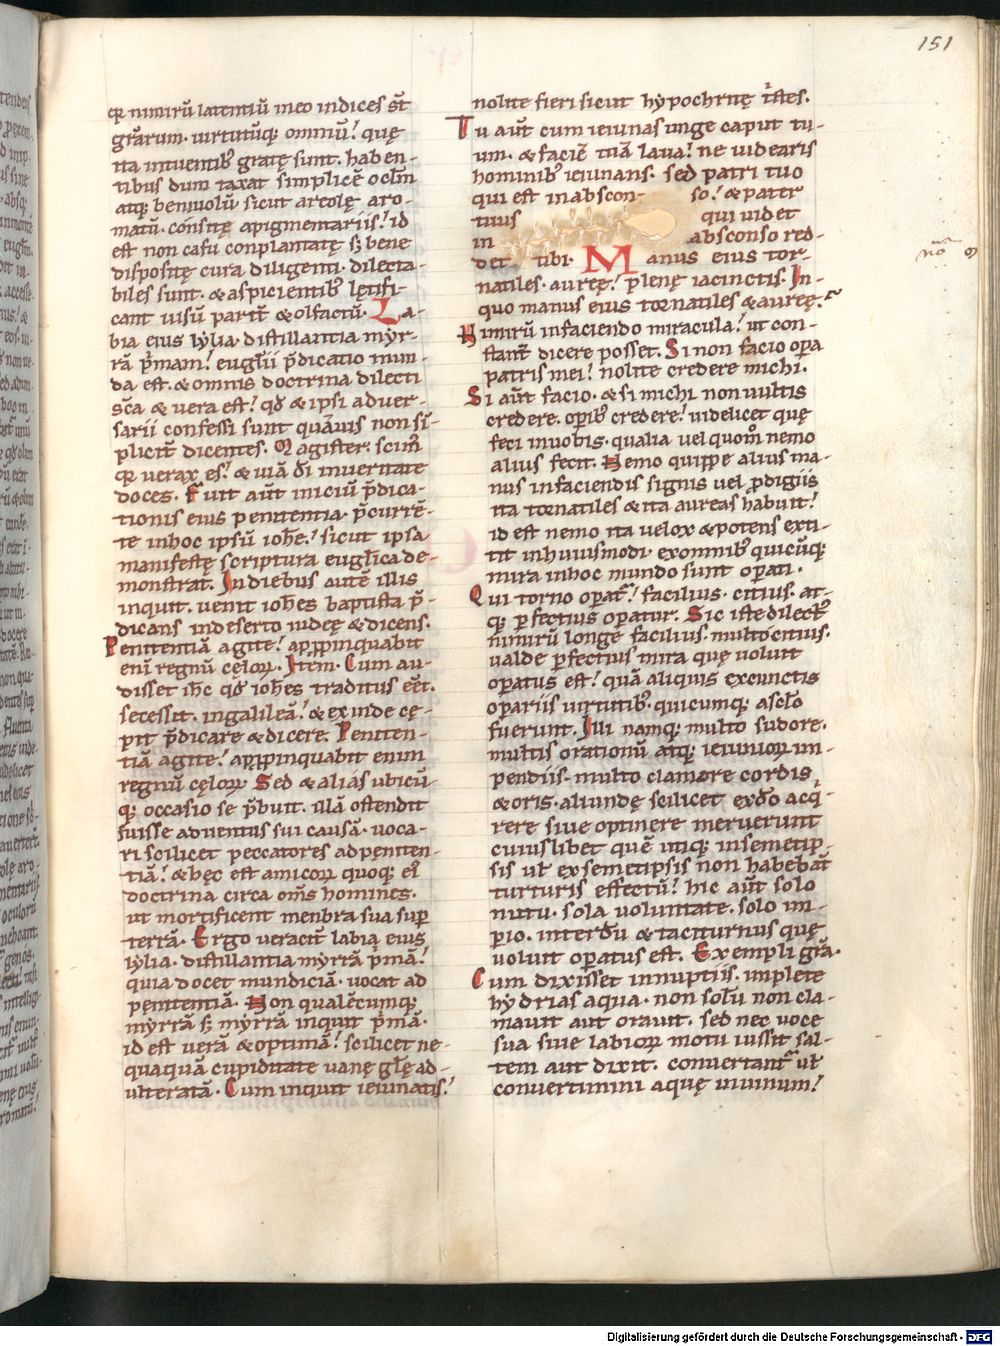 151
qꝫ nimirū latentiū in eo indices st̄
gr̄arum. uirtutūqꝫ omniū! quę
ita intuentibꝰ gratę sunt. haben-
tibus dum taxat simplicē oclm̄
atqꝫ beniuolū sicut areolę aro-
matū. consitę apigmentariis! id
est non casu conplantatę sꝫ bene
dispositę cura diligenti. dilecta-
biles sunt. & aspicientibꝰ lętifi-
cant uisū parit̄ & olfactū. La-
bia eius lylia. distillantia myr-
rā p̄mam! euglii p̄dicatio mun-
da est. & omnis doctrina dilecti
sc̄a & uera est! qđ & ipsi aduer-
sarii confessi sunt quāuis non sī-
plicit̄ dicentes. Magister. scimꝰ
qꝫ uerax es! & uiā dī inueritate
doces. Fuit aūt iniciū p̄dica-
tionis eius penitentia. p̄currē-
te inhoc ipsū iohē! sicut ipsa
manifestę scriptura euglica de-
monstrat. Indiebus autē illis
inquit. uenit iohēs baptista p̄-
dicans indeserto iudeę & dicens.
Penitentiā agite! appropinquabit
eni regnū cęlorꝫ. Item. Cum au-
disset ihc qđ iohēs traditus eēt.
secessit. ingalileā! & exinde cę-
pit p̄dicare & dicere. Peniten-
tiā agite! appropinquabit enim
regnū cęlorꝫ. Sed & alias ubicū-
qꝫ occasio se p̄buit. illā ostendit
fuisse aduentus sui causā. uoca-
ri scilicet peccatores adpęniten-
tiā! & hęc est amicorꝫ quoqꝫ eiꝰ
doctrina circa om̄s homines.
ut mortificent menbra sua sup̄
terrā. Ergo ueracit̄ labia eius
lylia. distillantia myrrā p̄mā!
quia docet mundiciā. uocat ad
penitentiā. Non qualēcumqꝫ
myrrā sꝫ myrrā inquit p̄mā.
id est uerā & optimā! scilicet ne-
quaquā cupiditate uanę glę ad-
ulteratā. Cum inquit ieiunatis!
nolite fieri sicut hypochritę tristes.
Tu aūt cum ieiunas unge caput tu-
um. & faciē tuā laua! ne uidearis
hominibꝰ ieiunans. sed patri tuo
qui est inabscon- so! & pater
tuus qui uidet
in absconso red-
det tibi. Manus eius tor-
natiles. aureę! plenę iacinctis. In-
quo manus eius tornatiles & aureę!
Nimirū infaciendo miracula! ut con-
stant̄ dicere posset. Si non facio opa
patris mei! nolite credere michi.
Si aūt facio. & si michi non uultis
credere. opibꝰ credere! uidelicet quę
feci inuobis. qualia uel quom̄ nemo
alius fecit. Nemo quippe alius ma-
nus infaciendis signis uel p̄digiis
ita tornatiles & ita aureas habuit!
id est nemo ita uelox & potens exti-
tit inhuiusmodi. exomnibꝰ quicūqꝫ
mira inhoc mundo sunt opati.
Qui torno opat̄! facilius. citius. at-
qꝫ pfectius opatur. Sic iste dilectꝰ
nimirū longe facilius. multo citius.
ualde pfectius mira quę uoluit
opatus est! quā aliquis excunctis
opariis uirtutibꝰ. quicumqꝫ asclo
fuerunt. Illi namqꝫ multo sudore.
multis orationū atqꝫ ieiuniorꝫ im-
pendiis. multo clamore cordis
& oris. aliunde scilicet exdo acq̄-
rere siue optinere meruerunt
cuiuslibet quē utiqꝫ insemetip-
sis ut̄ exsemetipsis non habebāt
turturis effectū! hic aūt solo
nutu. sola uoluntate. solo im-
pio. interdū & taciturnus quę
uoluit opatus est. Exempli grā.
Cum dixisset innuptiis. implete
hydrias aqua. non solū non cla-
mauit aut orauit. sed nec uoce
sua siue labiorꝫ motu iussit sal-
tem aut dixit. conuertant̄ ut̄
conuertimini aquę inuinum!
Digitalisierung gefördert durch die Deutsche Forschungsgemeinschaft - DFG